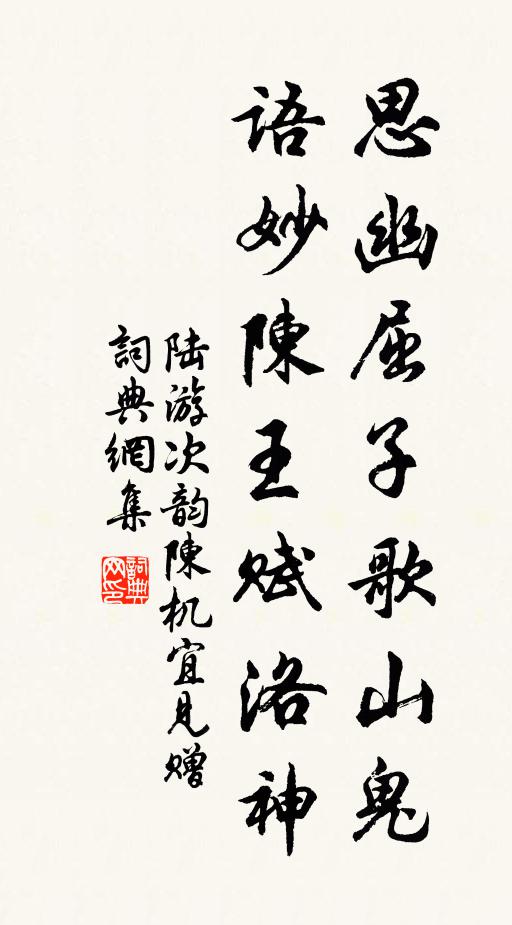 思幽屈子歌山鬼
語妙陳王赋洛神
陆游次韵陳机宜見赠
詞典網集
詞典网印